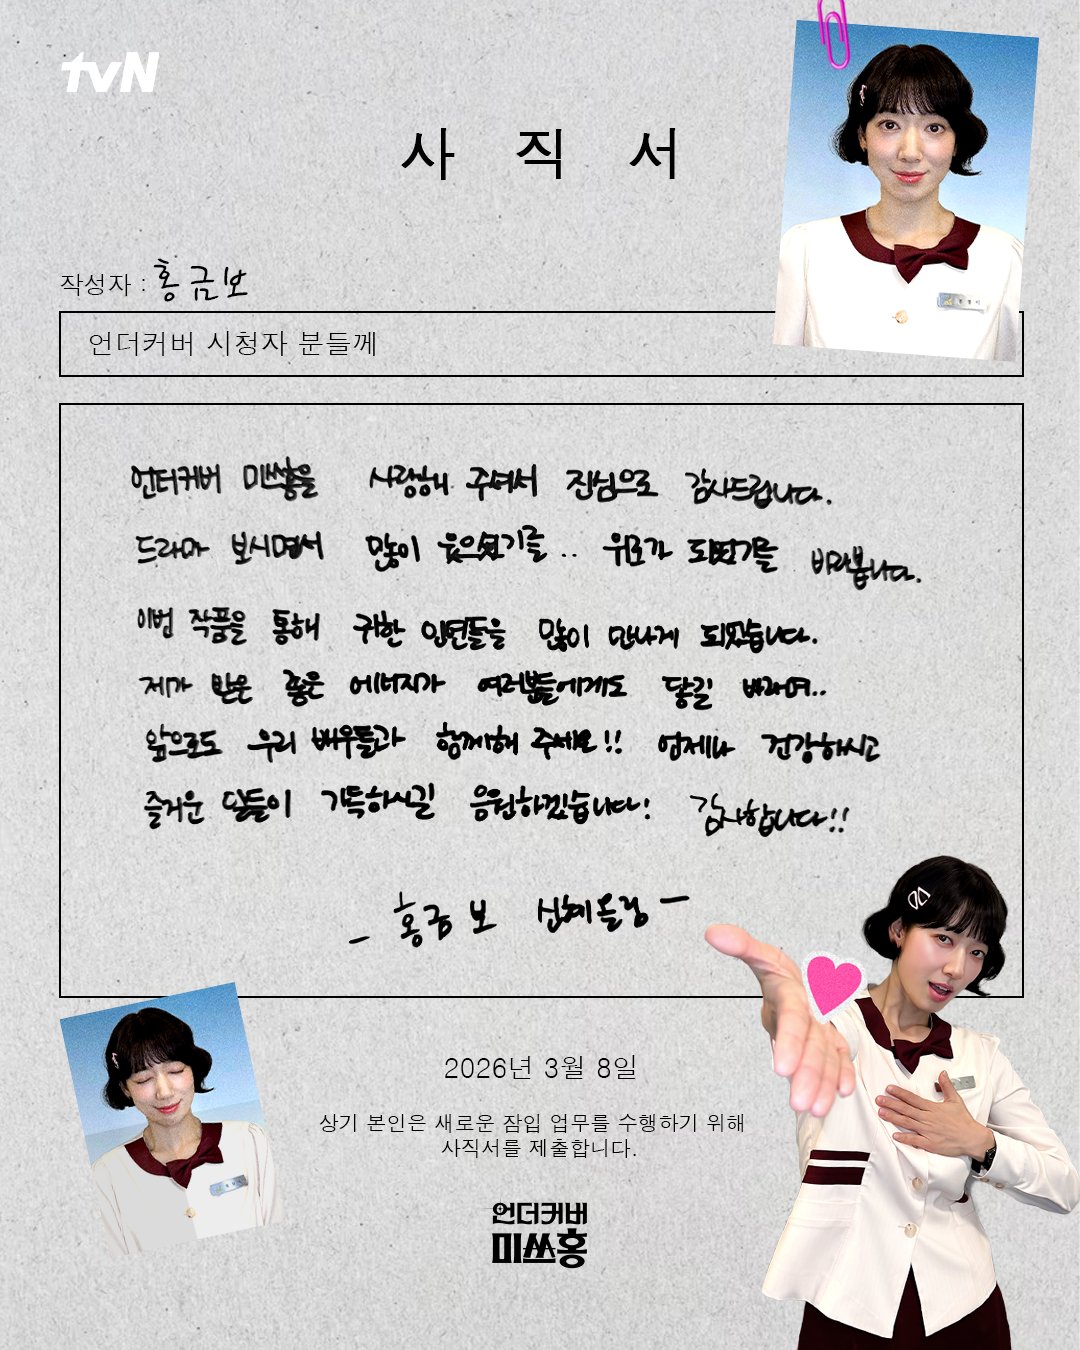 tvN
사 직 서
작성자 : 홍금보
언더커버 시청자 분들께
언더커버 미쓰홍을 사랑해 주셔서 진심으로 감사드립니다.
드라마 보시면서 많이 웃으셨기를.. 위로가 되셨기를 바라봅니다.
이번 작품을 통해 귀한 인연들을 많이 만나게 되었습니다.
제가 받은 좋은 에너지가 여러분들에게도 닿길 바라며..
앞으로도 우리 배우들과 함께해 주세요!! 언제나 건강하시고
즐거운 일들이 가득하시길 응원하겠습니다! 감사합니다!!
- 홍금보 신혜올림 -
2026년 3월 8일
상기 본인은 새로운 잠입 업무를 수행하기 위해
사직서를 제출합니다.
언더커버
미쓰홍